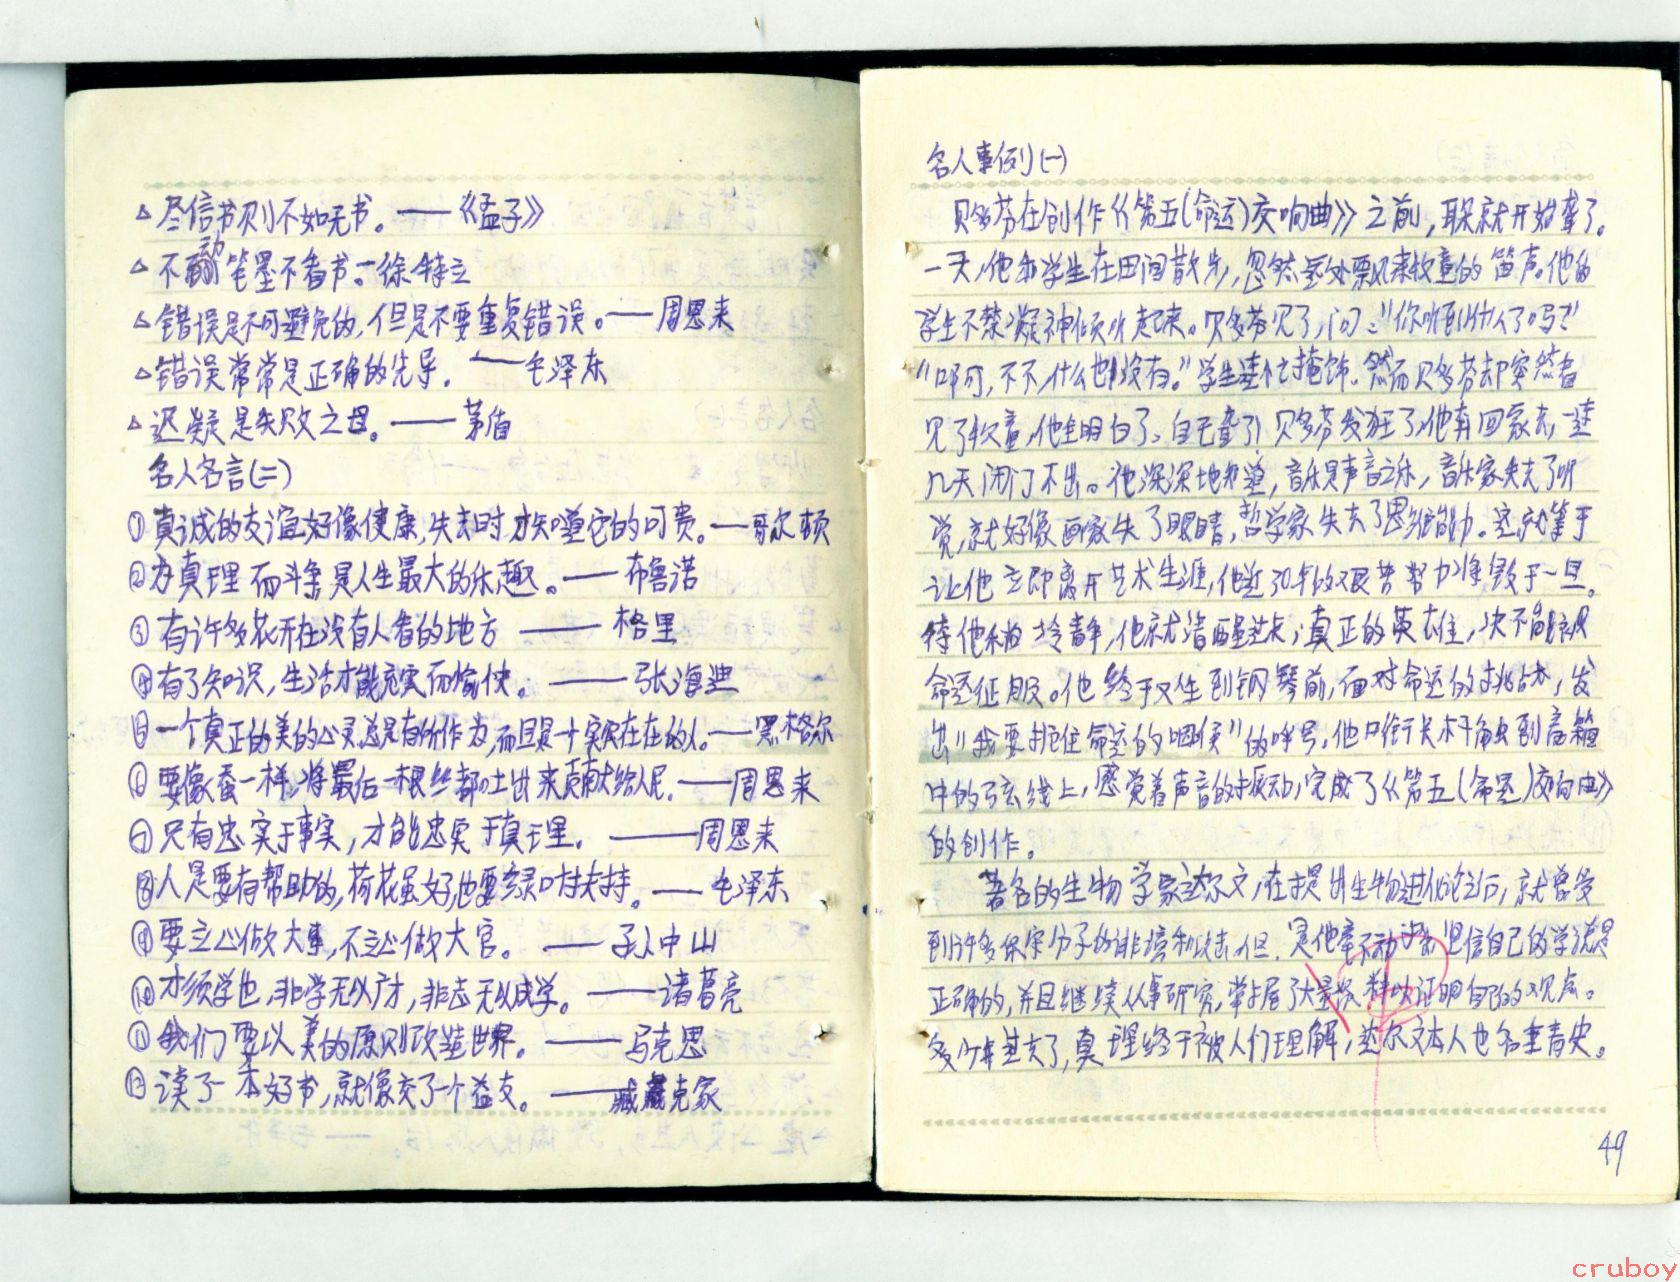 △尽信书则不如无书。——《孟子》
△不动笔墨不看书。—徐特立
△错误是不可避免的,但是不要重复错误。——周恩来
△错误常常是正确的先导。——毛泽东
△迟疑是失败之母。——茅盾
名人名言(二)
①真诚的友谊好像健康,失去时才知道它的可贵。——哥尔顿
②为真理而斗争是人生最大的乐趣。——布鲁诺
③有许多花开在没有人看的地方——格里
④有了知识,生活才能充实而愉快。——张海迪
⑤一个真正的美的心灵总是有所作为,而且是一个实实在在的人。——黑格尔
⑥要像蚕一样,将最后一根丝都吐出来贡献给人民。——周恩来
⑦只有忠实于事实,才能忠实于真理。——周恩来
⑧人是要有帮助的,荷花虽好,也要绿叶扶持。——毛泽东
⑨要立心做大事,不立心做大官。——孙中山
⑩才须学也,非学无以广才,非志无以成学。——诸葛亮
⑪我们要以美的原则改造世界。——马克思
⑫读了一本好书,就像交了一个益友。——臧克家
名人事例(一)
贝多芬在创作《第五(命运)交响曲》之前,耳朵就开始聋了。
一天,他和学生在田间散步,忽然远处飘来牧童的笛声。他的
学生不禁凝神倾听起来。贝多芬见了,问:"你听到什么了吗?"
"啊,不,不,什么也没有。"学生连忙掩饰。然而贝多芬却突然看
见了牧童,他全明白了。自己聋了!贝多芬发狂了,他奔回家去,一连
几天闭门不出。他深深地知道,音乐是声音之乐,音乐家失去了听
觉,就好像画家失了眼睛,哲学家失去了思维能力。这就等于
让他立即离开艺术生涯,他近30年的艰苦努力将毁于一旦。
待他稍冷静,他就清醒过来,真正的英雄,决不能被
命运征服。他终于又坐到钢琴前,面对命运的挑战,发
出"我要扼住命运的咽喉"的呼号,他口衔长木杆触到音箱
中的弦线上,感觉着声音的振动,完成了《第五(命运)交响曲》
的创作。
著名的生物学家达尔文,在提出生物进化论之后,就曾受
到许多保守分子的诽谤和攻击,但是他毫不动摇,坚信自己的学说是
正确的,并且继续从事研究,掌握了大量资料以证明自己的观点。
多少年过去了,真理终于被人们理解,达尔文本人也名垂青史。
49
cruboy